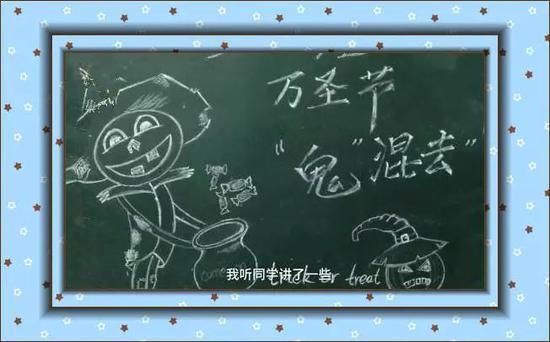 万圣节
"鬼"混去"
我听同学讲了一些
trick or treat